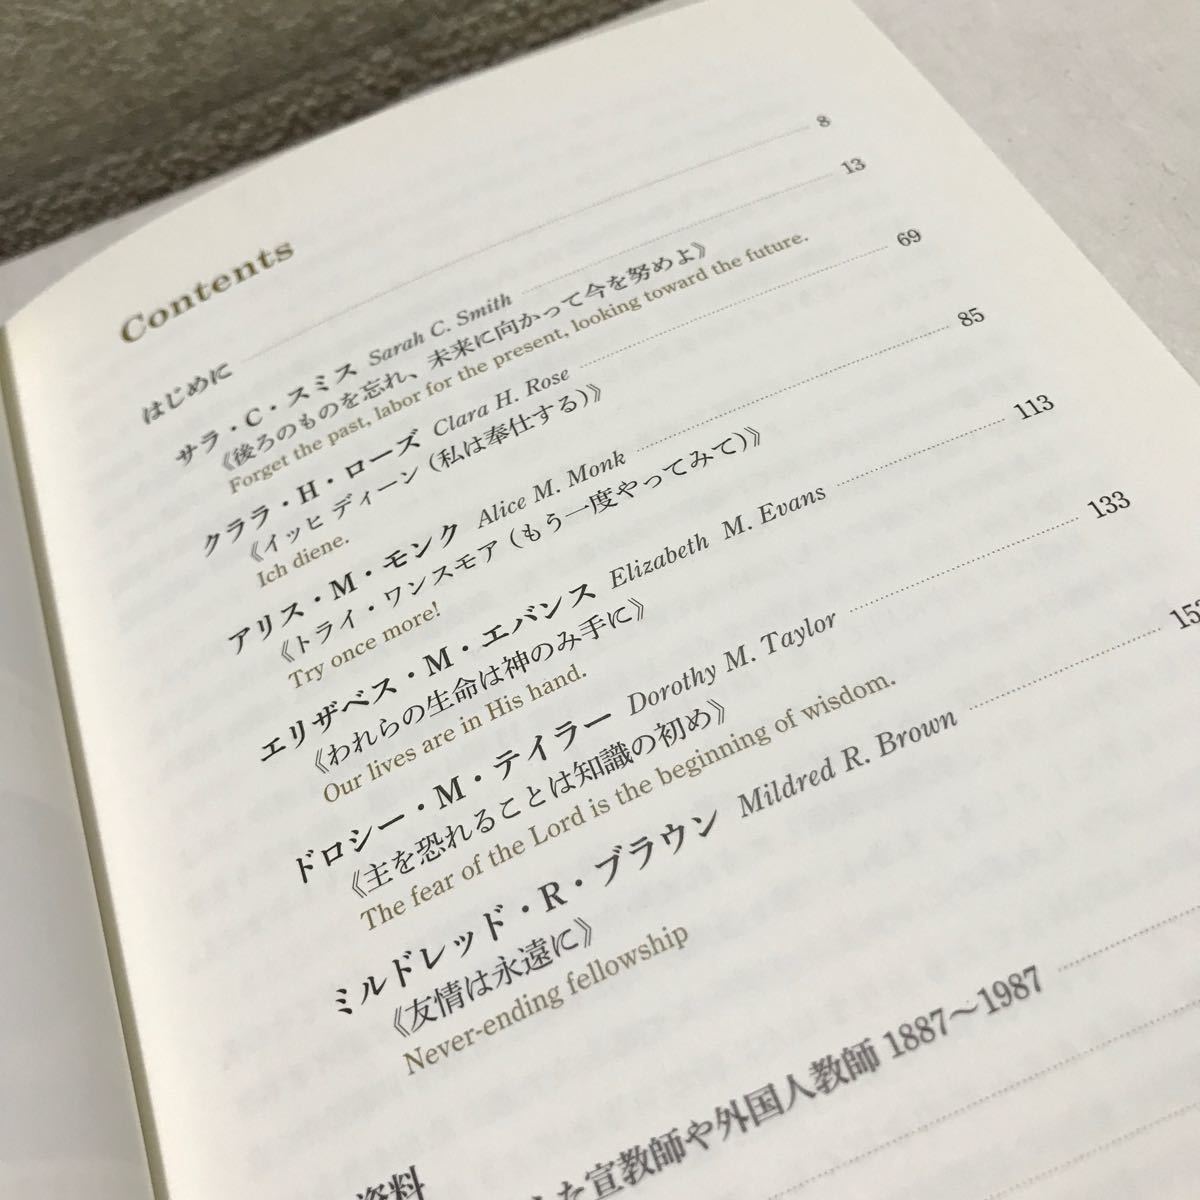 Contents
はじめに 8
サラ・C・スミス Sarah C. Smith 13
《後ろのものを忘れ、未来に向かって今を努めよ》
Forget the past, labor for the present, looking toward the future.
クララ・H・ローズ Clara H. Rose 69
《イッヒ ディーン（私は奉仕する）》
Ich diene.
アリス・M・モンク Alice M. Monk 85
《トライ・ワンスモア（もう一度やってみて）》
Try once more!
エリザベス・M・エバンス Elizabeth M. Evans 113
《われらの生命は神のみ手に》
Our lives are in His hand.
ドロシー・M・テイラー Dorothy M. Taylor 133
《主を恐れることは知識の初め》
The fear of the Lord is the beginning of wisdom.
ミルドレッド・R・ブラウン Mildred R. Brown
《友情は永遠に》
Never-ending fellowship
資料
た宣教師や外国人教師 1887〜1987